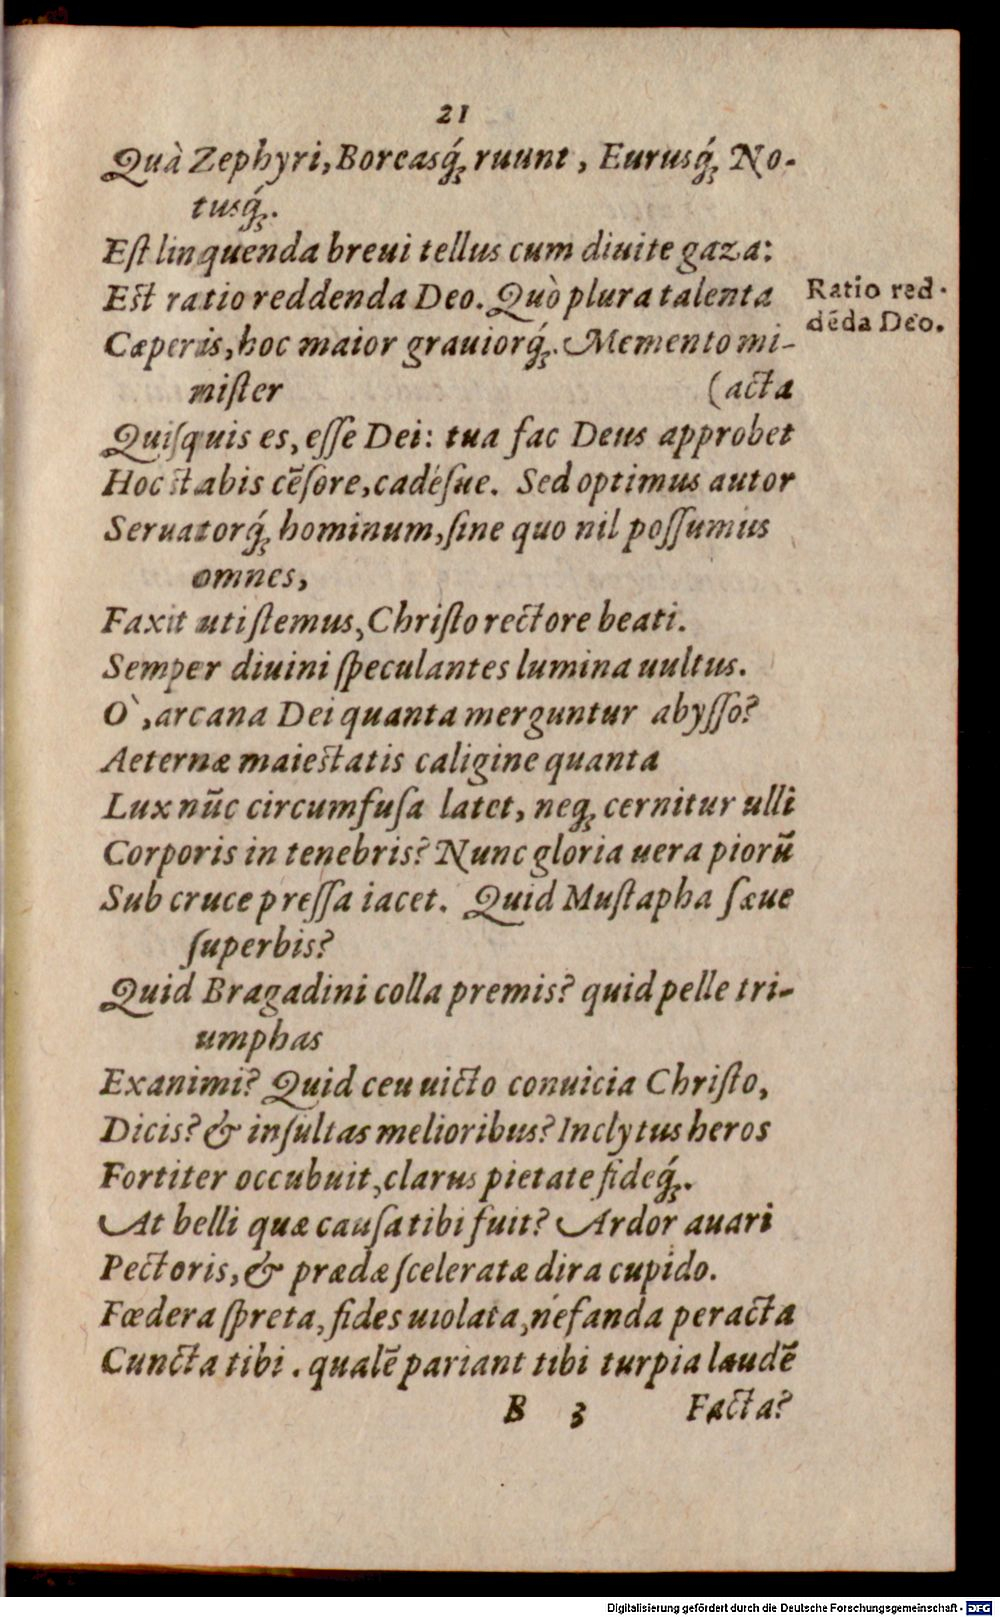 21
Quà Zephyri, Boreasq́ꝫ ruunt, Eurusq́ꝫ No-
tusq́ꝫ.
Est linquenda breui tellus cum diuite gaza:
Est ratio reddenda Deo. Quò plura talenta
Ratio red-
dēda Deo.
Cæperis, hoc maior grauiorq́ꝫ. Memento mi-
mister
(acta
Quiſquis es, eſſe Dei: tua fac Deus approbet
Hoc stabis cēſore, cadéſue. Sed optimus autor
Seruatorq́ꝫ hominum, ſine quo nil poſſumus
omnes,
Faxit uti ſtemus, Chriſto rectore beati.
Semper diuini ſpeculantes lumina uultus.
O`, arcana Dei quanta merguntur abyſſo?
Aeternæ maiestatis caligine quanta
Lux nūc circumfuſa latet, neqꝫ cernitur ulli
Corporis in tenebris? Nunc gloria uera piorū
Sub cruce preſſa iacet. Quid Muſtapha ſæue
ſuperbis?
Quid Bragadini colla premis? quid pelle tri-
umphas
Exanimi? Quid ceu uicto conuicia Chriſto,
Dicis? & inſultas melioribus? Inclytus heros
Fortiter occubuit, clarus pietate fideq́ꝫ.
At belli quæ cauſa tibi fuit? Ardor auari
Pectoris, & prædæ ſceleratæ dira cupido.
Fœdera ſpreta, fides uiolata, nefanda peracta
Cuncta tibi. qualē pariant tibi turpia laudē
B 3 Facta?
Digitalisierung gefördert durch die Deutsche Forschungsgemeinschaft - DFG